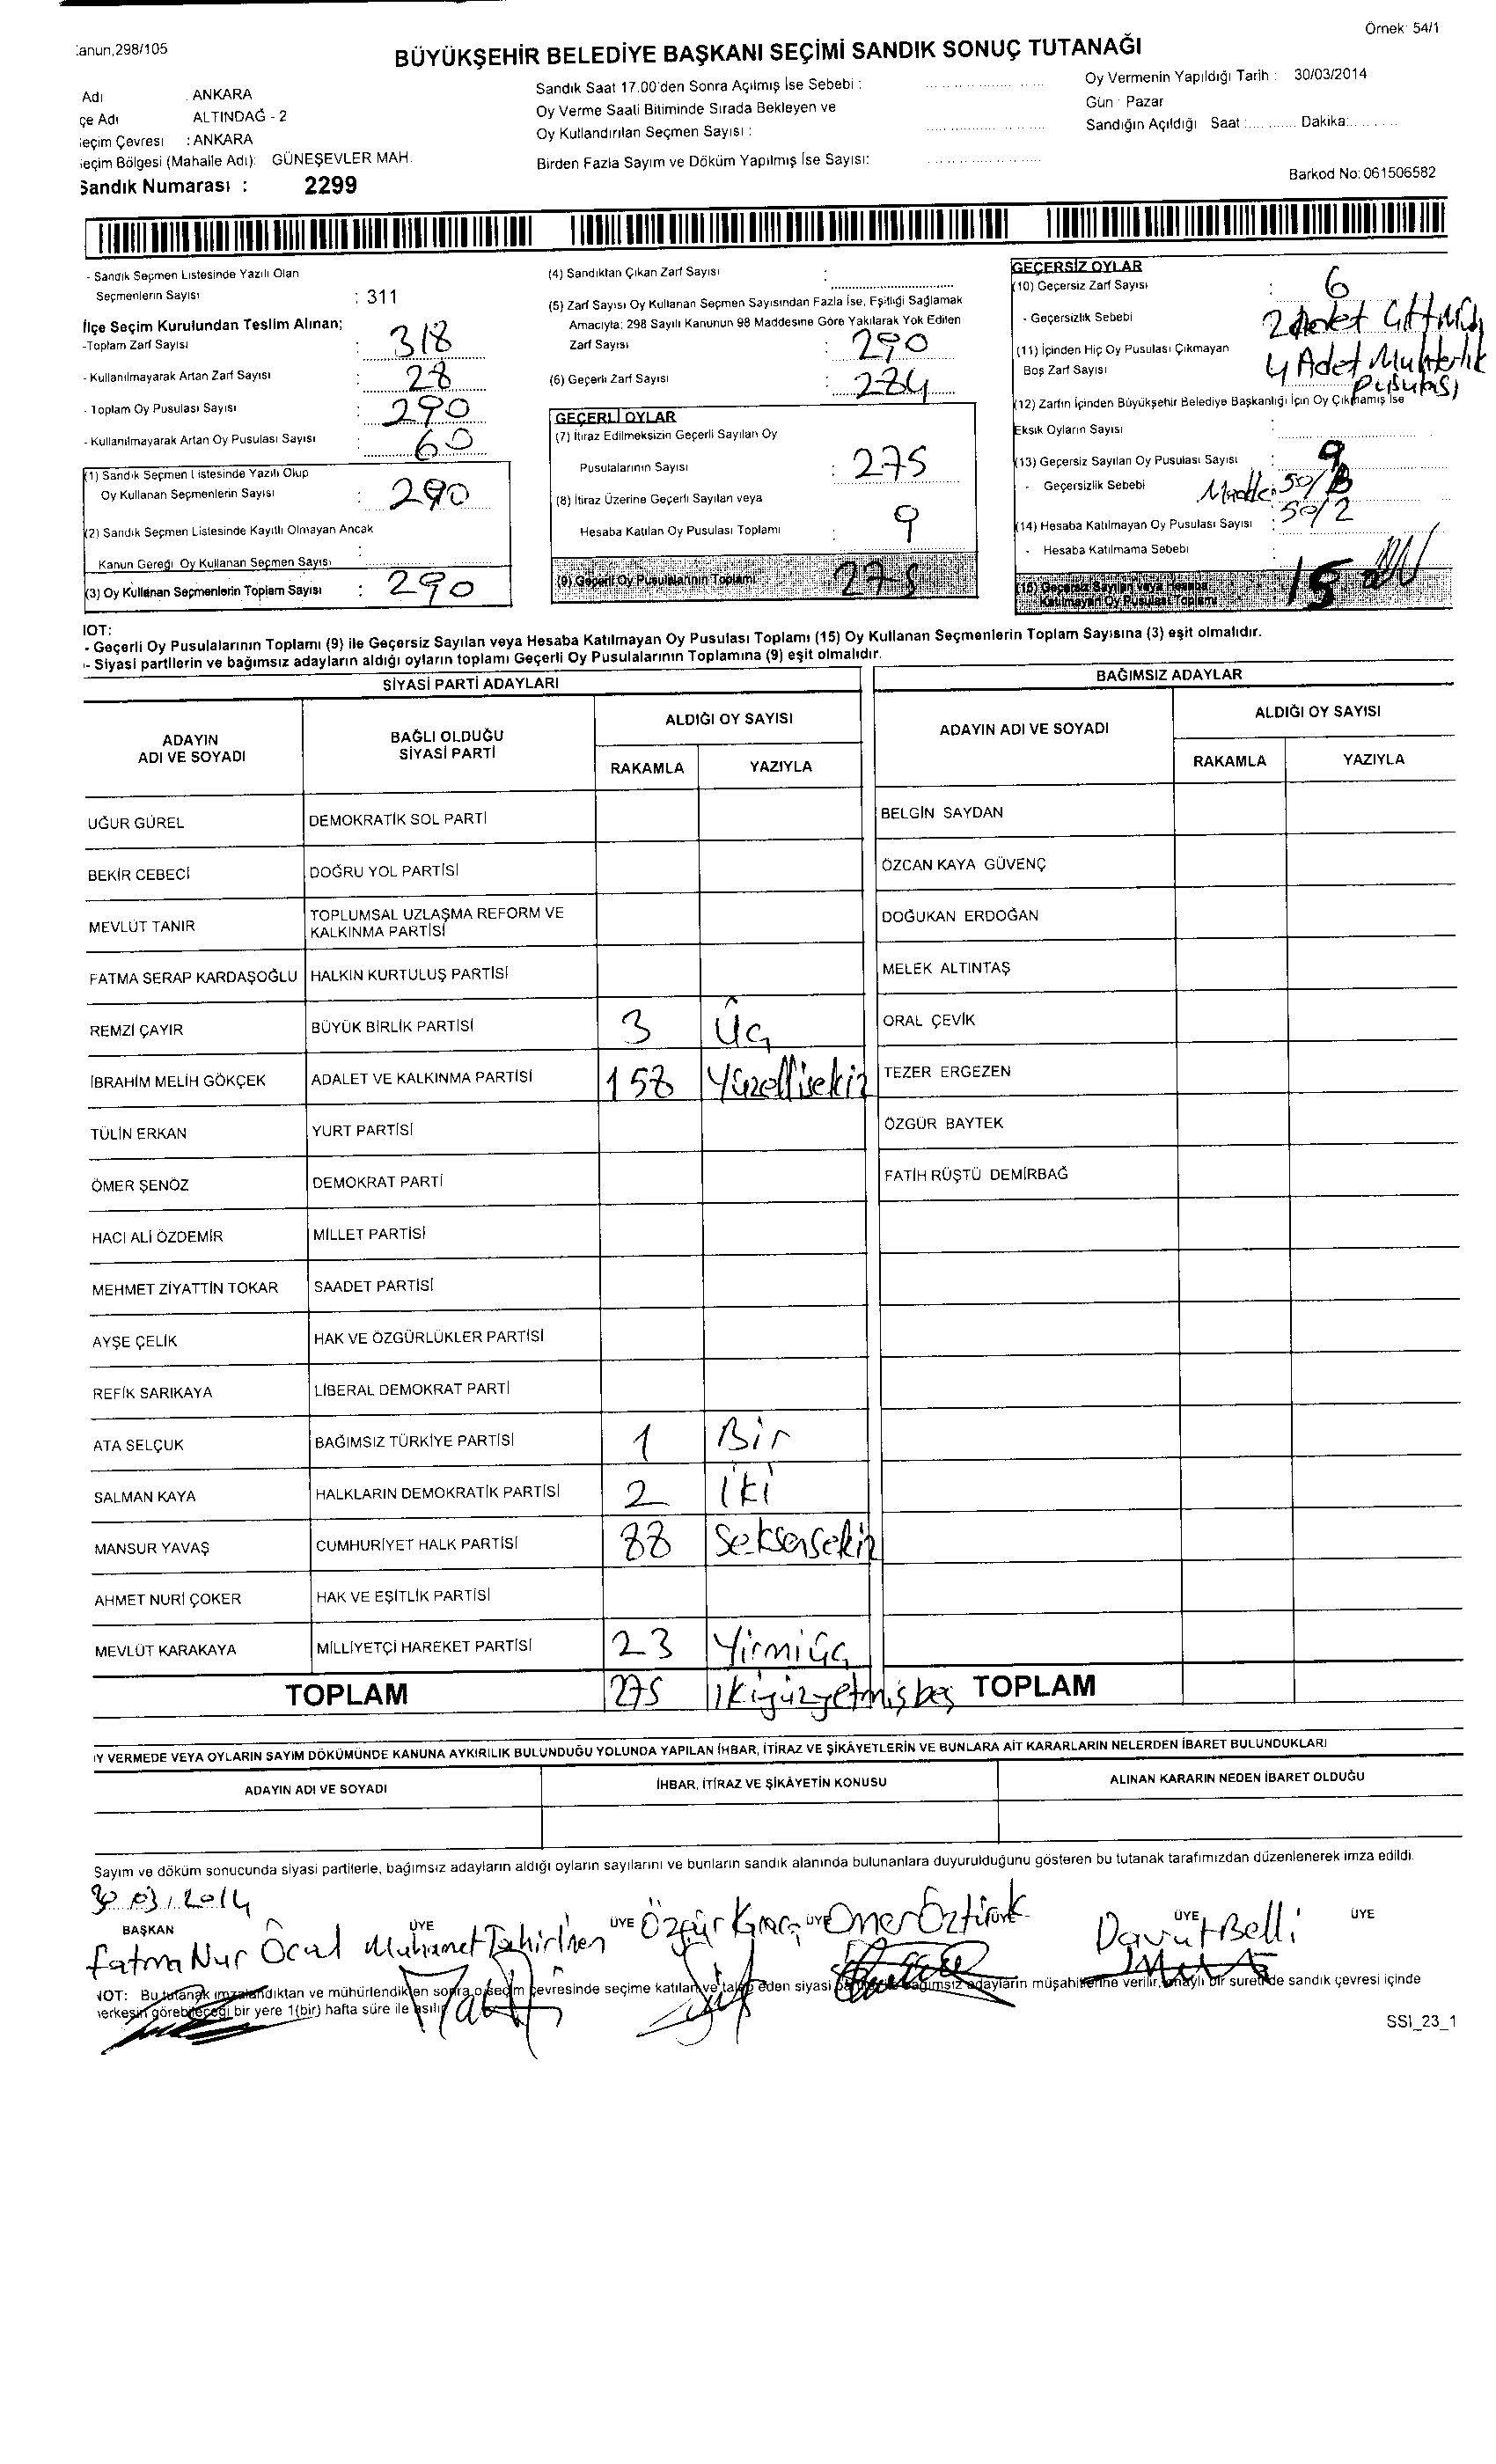 Örnek: 54/1
anun,298/105
BÜYÜKŞEHİR BELEDİYE BAŞKANI SEÇİMİ SANDIK SONUÇ TUTANAĞI
Adı : ANKARA
çe Adı ALTINDAĞ - 2
eçim Çevresi : ANKARA
eçim Bölgesi (Mahalle Adı): GÜNEŞEVLER MAH.
Sandık Numarası : 2299
Sandık Saat 17.00'den Sonra Açılmış İse Sebebi :
Oy Verme Saati Bitiminde Sırada Bekleyen ve
Oy Kullandırılan Seçmen Sayısı :
Birden Fazla Sayım ve Döküm Yapılmış İse Sayısı:
Oy Vermenin Yapıldığı Tarih : 30/03/2014
Gün : Pazar
Sandığın Açıldığı Saat : Dakika:
Barkod No: 061506582
- Sandık Seçmen Listesinde Yazılı Olan
Seçmenlerin Sayısı : 311
İlçe Seçim Kurulundan Teslim Alınan;
-Toplam Zarf Sayısı : 318
- Kullanılmayarak Artan Zarf Sayısı : 28
- Toplam Oy Pusulası Sayısı : 290
- Kullanılmayarak Artan Oy Pusulası Sayısı : 60
(1) Sandık Seçmen Listesinde Yazılı Olup
Oy Kullanan Seçmenlerin Sayısı : 290
(2) Sandık Seçmen Listesinde Kayıtlı Olmayan Ancak
Kanun Gereği Oy Kullanan Seçmen Sayısı :
(3) Oy Kullanan Seçmenlerin Toplam Sayısı : 290
(4) Sandıktan Çıkan Zarf Sayısı :
(5) Zarf Sayısı Oy Kullanan Seçmen Sayısından Fazla İse, Eşitliği Sağlamak
Amacıyla: 298 Sayılı Kanunun 98 Maddesine Göre Yakılarak Yok Edilen
Zarf Sayısı : 290
(6) Geçerli Zarf Sayısı : 284
GEÇERLİ OYLAR
(7) İtiraz Edilmeksizin Geçerli Sayılan Oy
Pusulalarının Sayısı : 275
(8) İtiraz Üzerine Geçerli Sayılan veya
Hesaba Katılan Oy Pusulası Toplamı : 9
(9) Geçerli Oy Pusulalarının Toplamı 275
GEÇERSİZ OYLAR
(10) Geçersiz Zarf Sayısı : 6
- Geçersizlik Sebebi 2 Adet
(11) İçinden Hiç Oy Pusulası Çıkmayan
Boş Zarf Sayısı 4 Adet Muhtarlık
Pusulası
(12) Zarfın İçinden Büyükşehir Belediye Başkanlığı İçin Oy Çıkmamış İse
Eksik Oyların Sayısı :
(13) Geçersiz Sayılan Oy Pusulası Sayısı : 9
- Geçersizlik Sebebi Madde 50/B
50/2
(14) Hesaba Katılmayan Oy Pusulası Sayısı :
- Hesaba Katılmama Sebebi :
(15) Geçersiz Sayılan veya Hesaba
Katılmayan Oy Pusulası Toplamı 15
NOT:
- Geçerli Oy Pusulalarının Toplamı (9) ile Geçersiz Sayılan veya Hesaba Katılmayan Oy Pusulası Toplamı (15) Oy Kullanan Seçmenlerin Toplam Sayısına (3) eşit olmalıdır.
- Siyasi partilerin ve bağımsız adayların aldığı oyların toplamı Geçerli Oy Pusulalarının Toplamına (9) eşit olmalıdır.
SİYASİ PARTİ ADAYLARI
ADAYIN ADI VE SOYADI BAĞLI OLDUĞU SİYASİ PARTİ ALDIĞI OY SAYISI
RAKAMLA YAZIYLA
UĞUR GÜREL DEMOKRATİK SOL PARTİ
BEKİR CEBECİ DOĞRU YOL PARTİSİ
MEVLÜT TANIR TOPLUMSAL UZLAŞMA REFORM VE
KALKINMA PARTİSİ
FATMA SERAP KARDAŞOĞLU HALKIN KURTULUŞ PARTİSİ
REMZİ ÇAYIR BÜYÜK BİRLİK PARTİSİ 3 Üç
İBRAHİM MELİH GÖKÇEK ADALET VE KALKINMA PARTİSİ 158 Yüzellisekiz
TÜLİN ERKAN YURT PARTİSİ
ÖMER ŞENÖZ DEMOKRAT PARTİ
HACI ALİ ÖZDEMİR MİLLET PARTİSİ
MEHMET ZİYATTİN TOKAR SAADET PARTİSİ
AYŞE ÇELİK HAK VE ÖZGÜRLÜKLER PARTİSİ
REFİK SARIKAYA LİBERAL DEMOKRAT PARTİ
ATA SELÇUK BAĞIMSIZ TÜRKİYE PARTİSİ 1 Bir
SALMAN KAYA HALKLARIN DEMOKRATİK PARTİSİ 2 iki
MANSUR YAVAŞ CUMHURİYET HALK PARTİSİ 88 Seksensekiz
AHMET NURİ ÇOKER HAK VE EŞİTLİK PARTİSİ
MEVLÜT KARAKAYA MİLLİYETÇİ HAREKET PARTİSİ 23 Yirmiüç
TOPLAM 275 ikiyüzyetmişbeş
BAĞIMSIZ ADAYLAR
ADAYIN ADI VE SOYADI ALDIĞI OY SAYISI
RAKAMLA YAZIYLA
BELGİN SAYDAN
ÖZCAN KAYA GÜVENÇ
DOĞUKAN ERDOĞAN
MELEK ALTINTAŞ
ORAL ÇEVİK
TEZER ERGEZEN
ÖZGÜR BAYTEK
FATİH RÜŞTÜ DEMİRBAĞ
TOPLAM
Y VERMEDE VEYA OYLARIN SAYIM DÖKÜMÜNDE KANUNA AYKIRILIK BULUNDUĞU YOLUNDA YAPILAN İHBAR, İTİRAZ VE ŞİKÂYETLERİN VE BUNLARA AİT KARARLARIN NELERDEN İBARET BULUNDUKLARI
ADAYIN ADI VE SOYADI İHBAR, İTİRAZ VE ŞİKÂYETİN KONUSU ALINAN KARARIN NEDEN İBARET OLDUĞU
Sayım ve döküm sonucunda siyasi partilerle, bağımsız adayların aldığı oyların sayılarını ve bunların sandık alanında bulunanlara duyurulduğunu gösteren bu tutanak tarafımızdan düzenlenerek imza edildi.
30.03.2014
BAŞKAN ÜYE ÜYE ÜYE ÜYE ÜYE
Fatma Nur Öcal Muhamet Tahir Özgür Kıraç Ömer Öztürk Davut Belli
NOT: Bu tutanak imzalandıktan ve mühürlendikten sonra o seçim çevresinde seçime katılan ve talep eden siyasi bağımsız adayların müşahitlerine verilir, onaylı bir suretide sandık çevresi içinde
herkesin görebileceği bir yere 1(bir) hafta süre ile asılır
SSI_23_1